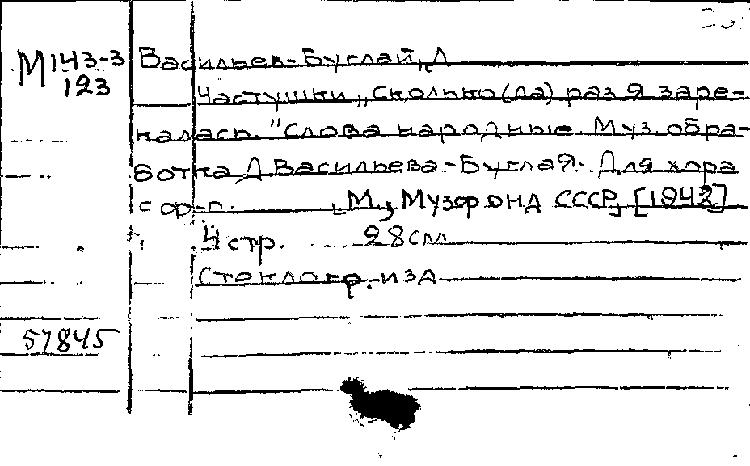 М143-3 Васильев-Буглай, Д
123
Частушки „Сколько (да) раз я заре-
калась." Слова народные. Муз. обра-
ботка Д Васильева-Буглая. Для хора
с ор-п. М., Музфонд СССР, [1942]
4 стр. 28 см
Стеклогр. изд
57845